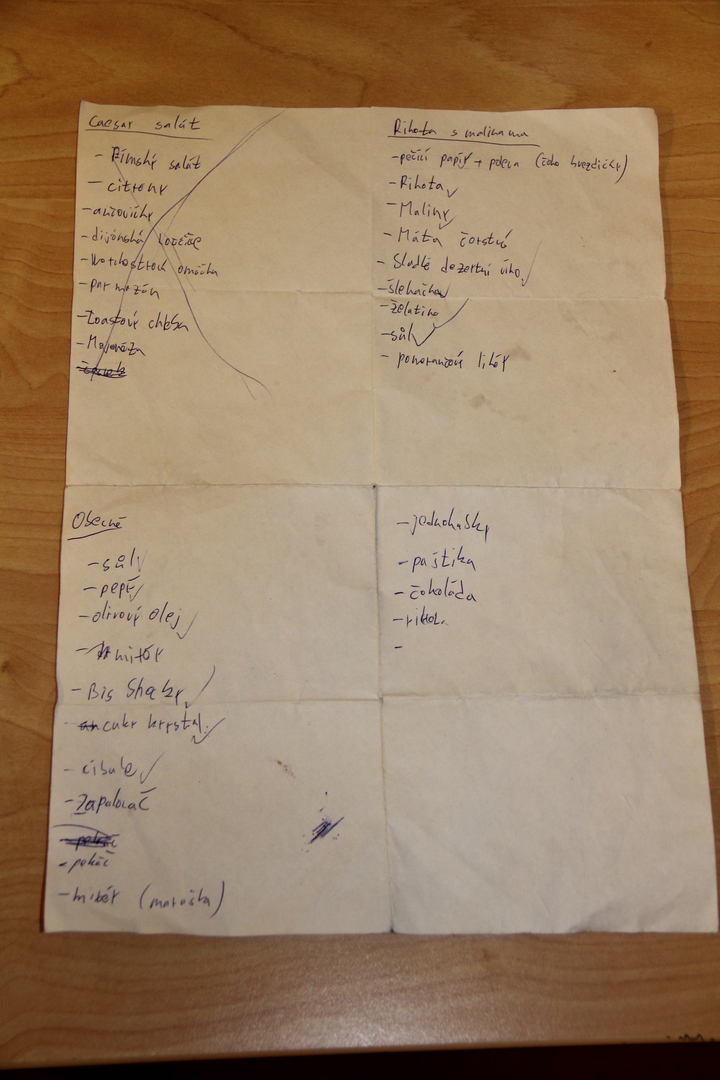 Caesar salát
- Římský salát
- citrony
- ančovičky
- dijónská hořčice
- Worchestrová omáčka
- parmazán
- Toastový chleba
- Majonéza
Rikota s malinama
- pečící papír + poleva (čoko hvezdičky)
- Rikota
- Maliny
- Máta čerstvá
- Sladké dezertní víno
- šlehačka
- želatina
- sůl
- pomerančový likér
Obecně
- sůl
- pepř
- olivový olej
- Big Shoky
- cukr krystal
- cibule
- Zapalovač
- pekáč
- mixér (maruška)
- jednohubky
- paštika
- čokoláda
- rikola
-